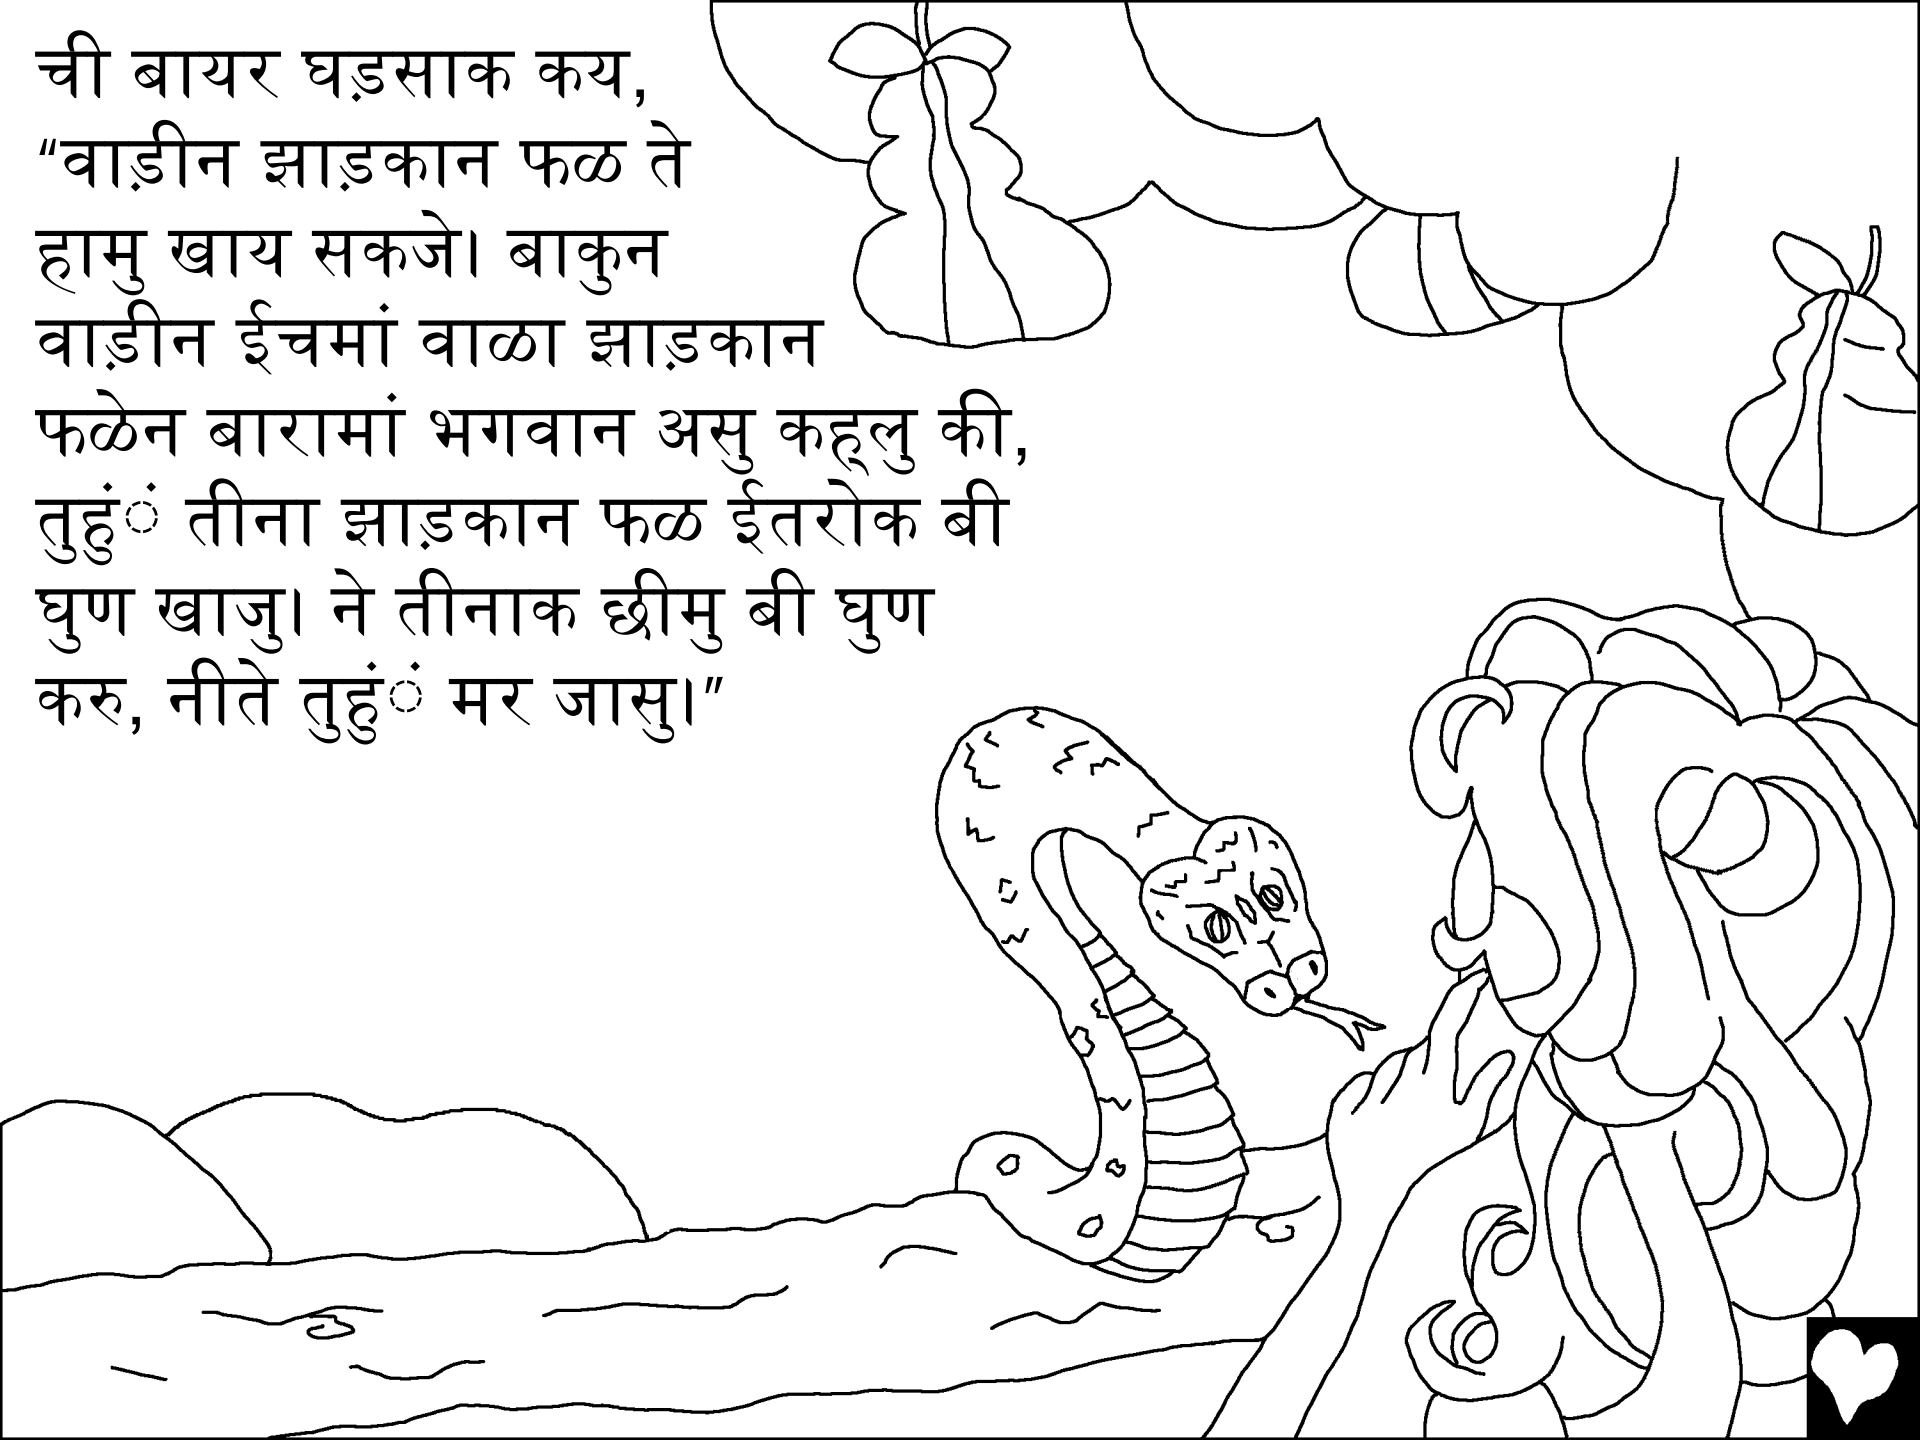 ची बायर घड़साक कय,
“वाड़ीन झाड़कान फळ ते
हामु खाय सकजे। बाकुन
वाड़ीन ईचमां वाळा झाड़कान
फळेन बारामां भगवान असु कह्‌लु की,
तुहुंं तीना झाड़कान फळ ईतरोक बी
घुण खाजु। ने तीनाक छीमु बी घुण
करु, नीते तुहुंं मर जासु।”